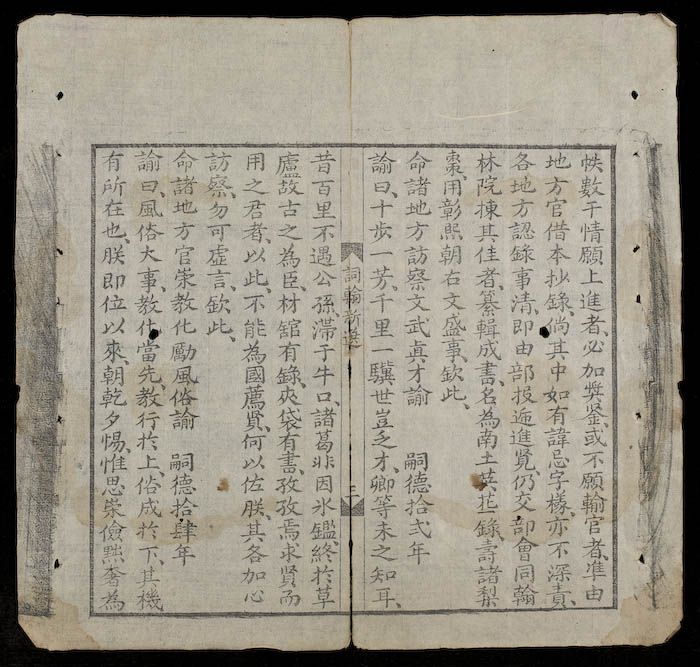 帙數干情願上進者、必加獎鉴、或不願輸官者、準由
地方官借本抄錄、倘其中如有諱忌字樣、亦不深責、
各地方認錄事清、即由部投逓進覽、仍交部會同翰
林院揀其佳者、纂輯成書、名為南土英花錄、壽諸梨
棗、用彰熙朝右文盛事、欽此、
命諸地方訪察文武眞才諭　嗣德拾弍年
諭曰、十步一芳、千里一驥、世豈乏才、卿等未之知耳、
詞翰新選
二十
昔百里不遇公孫、滯于牛口、諸葛非因氷鑑、終於草
廬、故古之為臣、材舘有錄、夾袋有書、孜孜焉求賢而
用之君者、以此、不能為國薦賢、何以佐朕、其各加心
訪察、勿可虛言、欽此、
命諸地方官崇教化勵風俗諭　嗣德拾肆年
諭曰、風俗大事、教化當先、教行於上、俗成於下、其機
有所在也、朕即位以來、朝乾夕惕、惟思崇儉黜奢為